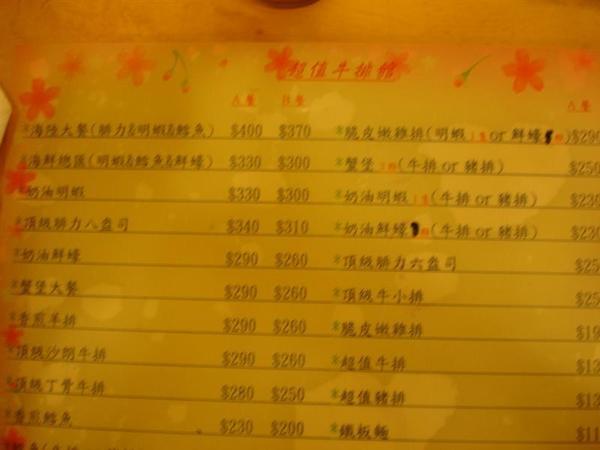 超值牛排館
A餐 B餐 A餐
*海陸大餐(腓力&明蝦&鱈魚) $400 $370 *脆皮嫩雞排(明蝦 or 鮮蠔 )$290
*海鮮總匯(明蝦&鱈魚&鮮蠔) $330 $300 *蟹堡 (牛排 or 豬排) $250
*奶油明蝦 $330 $300 *奶油明蝦 (牛排 or 豬排) $230
*頂級腓力八盎司 $340 $310 *奶油鮮蠔 (牛排 or 豬排) $230
*奶油鮮蠔 $290 $260 *頂級腓力六盎司
*蟹堡大餐 $290 $260 *頂級牛小排
*香煎羊排 $290 $260 *脆皮嫩雞排
*頂級沙朗牛排 $290 $260 *超值牛排
*頂級丁骨牛排 $280 $250 *超值豬排
*香煎鱈魚 $230 $200 *鐵板麵